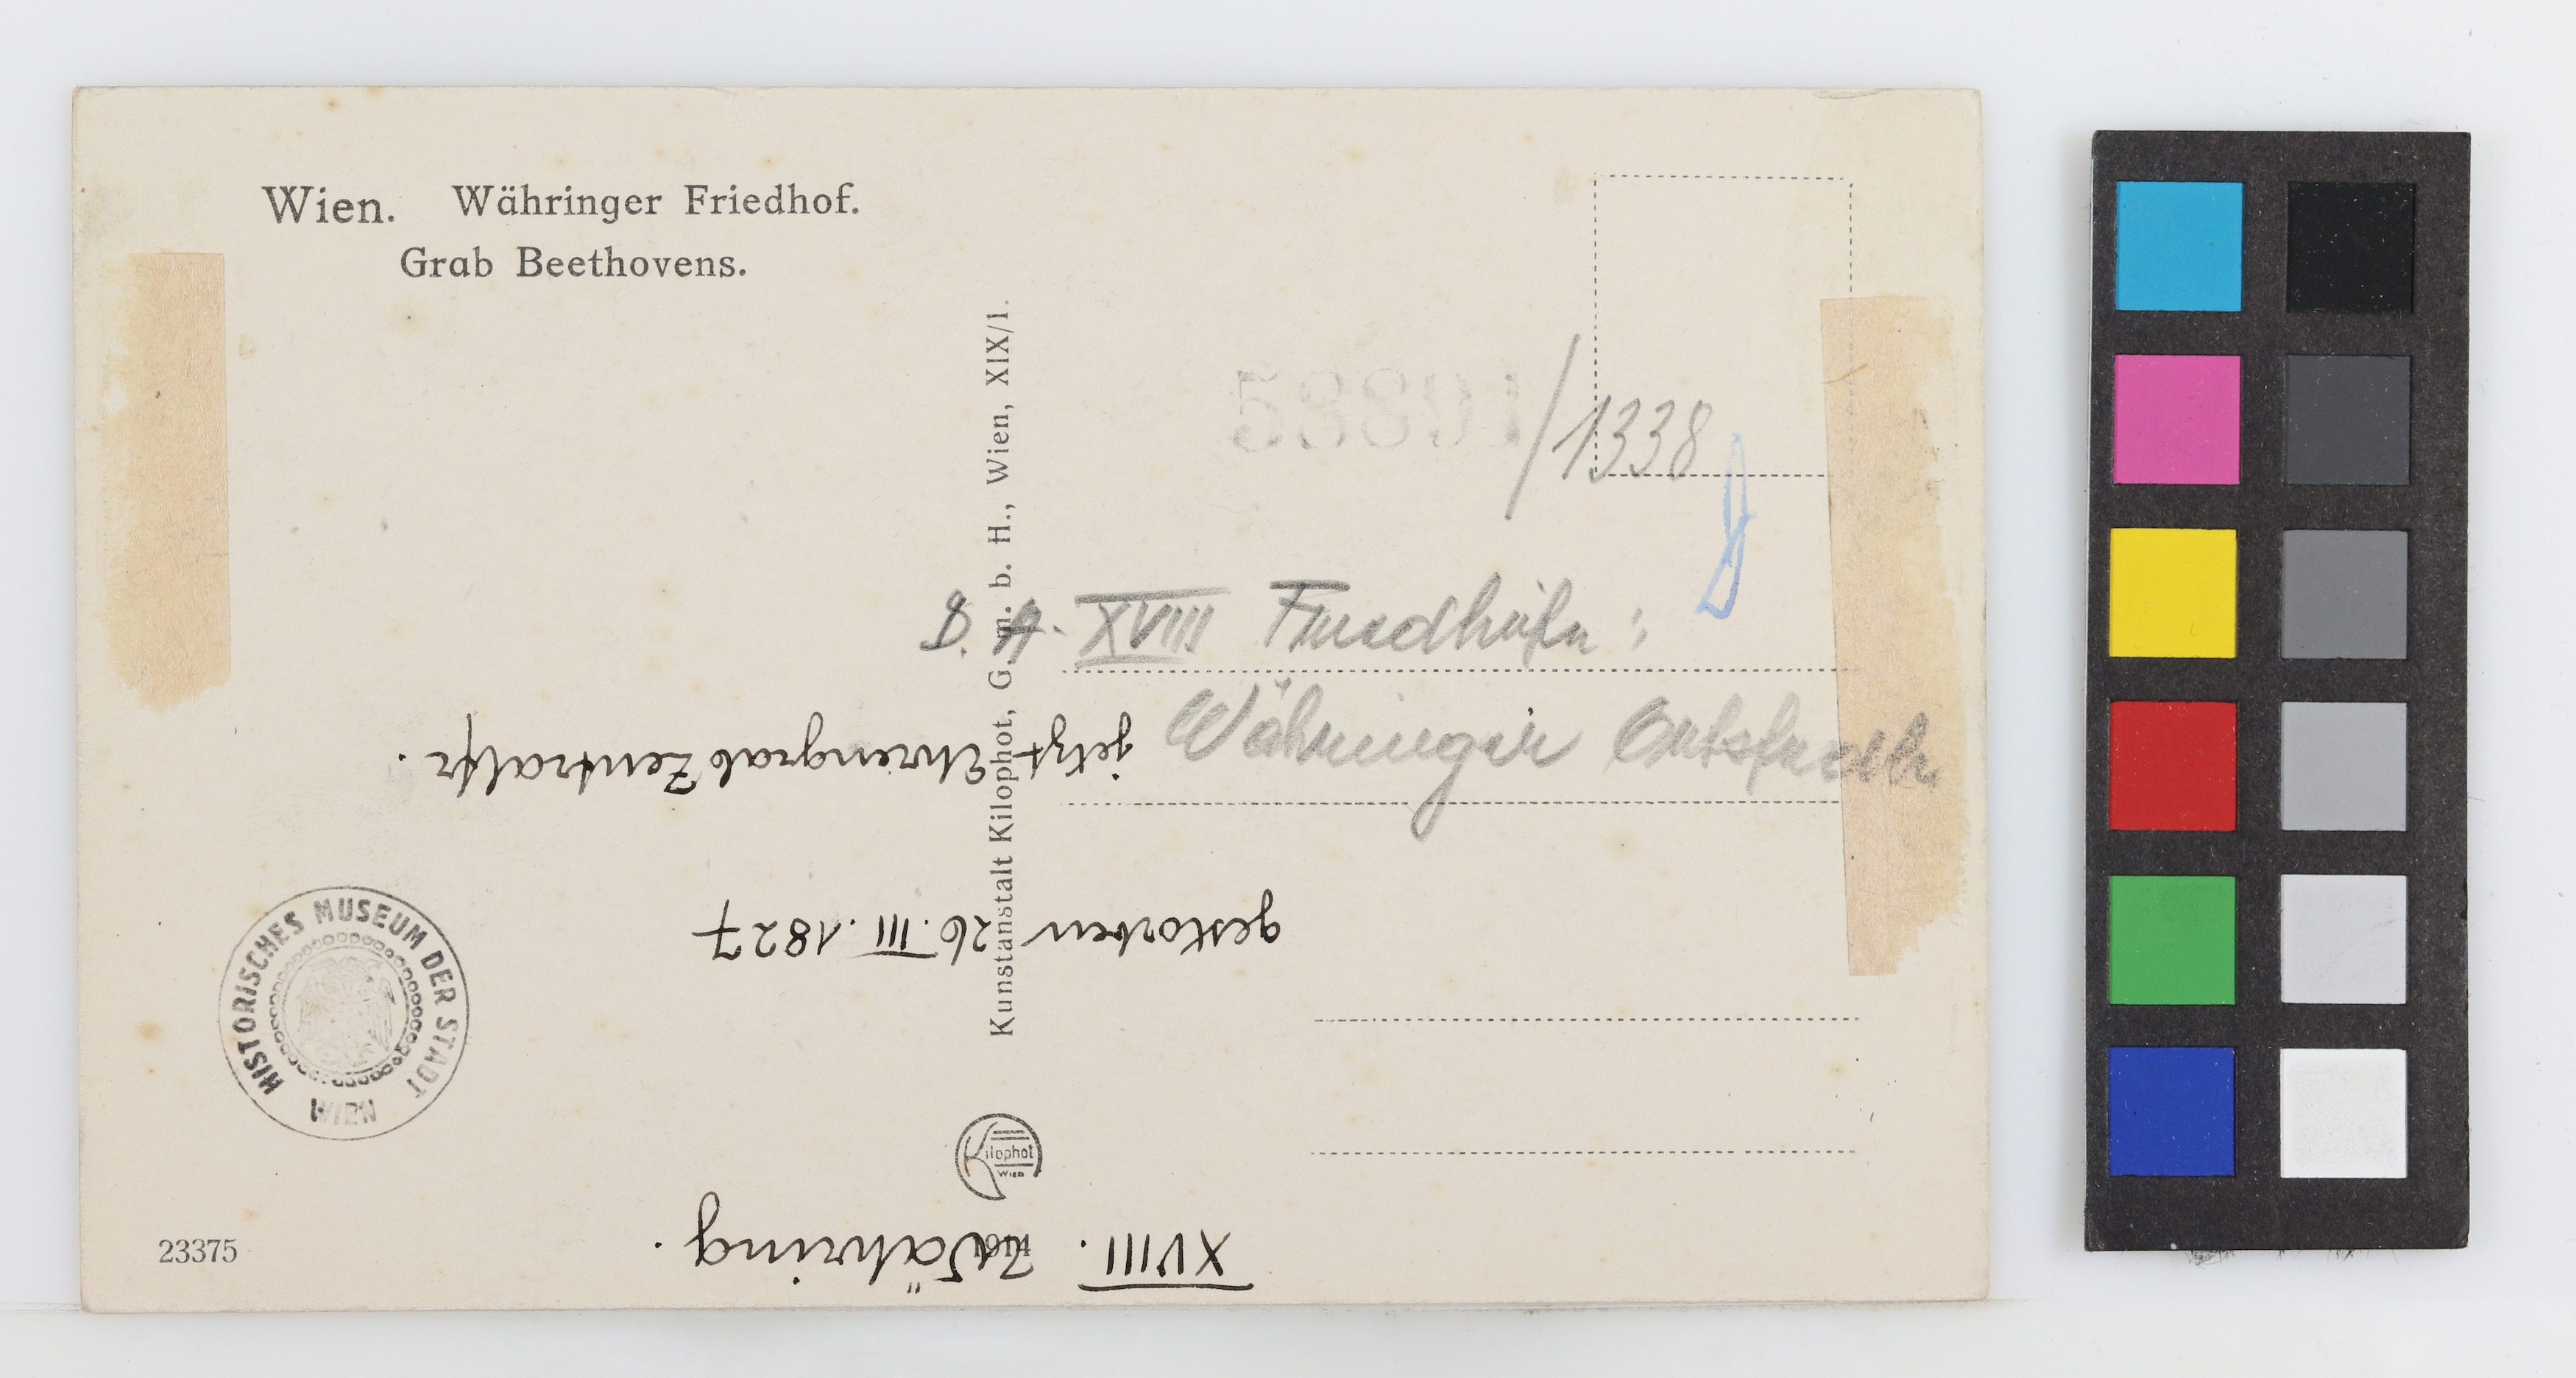 Wien. Währinger Friedhof.
Grab Beethovens.
Kunstanstalt Kilophot, G. m. b. H., Wien, XIX/1.
58891/1338
B. A. XVIII Friedhöfe:
Währinger Ortsfriedh.
jetzt Ehrengrab Zentralfr.
gestorben 26. III. 1827
HISTORISCHES MUSEUM DER STADT
WIEN
Kilophot
Wien
1914
XVIII. Währing.
23375